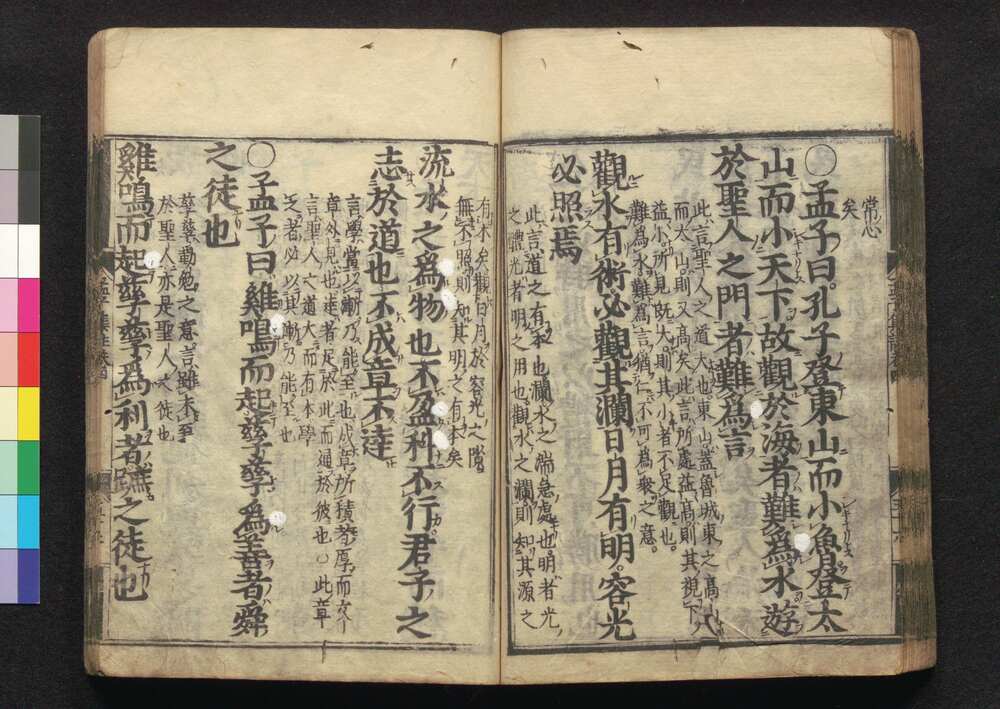 常心
矣
○孟子曰孔子登東山而小魯登太
山而小天下故觀於海者難爲水遊
於聖人之門者難爲言
此言聖人之道大也東山蓋魯城東之高山
而太山則又高矣此言所處益高則其視下
益小所見既大則其小者不足觀也
難爲水難爲言猶仁不可爲衆之意
觀水有術必觀其瀾日月有明容光
必照焉
此言道之有本也瀾水之湍急處也明者光
之體光者明之用也觀水之瀾則知其源之
有本矣觀日月於容光之隙
無不照則知其明之有本矣
流水之爲物也不盈科不行君子之
志於道也不成章不達
言學當以漸乃能至也成章所積者厚而文
章外見也達者足於此而通於彼也○此章
言聖人之道大而有本學
之者必以其漸乃能至也
○孟子曰雞鳴而起孳孳爲善者舜
之徒也
孳孳勤勉之意言雖未至
於聖人亦是聖人之徒也
雞鳴而起孳孳爲利者蹠之徒也